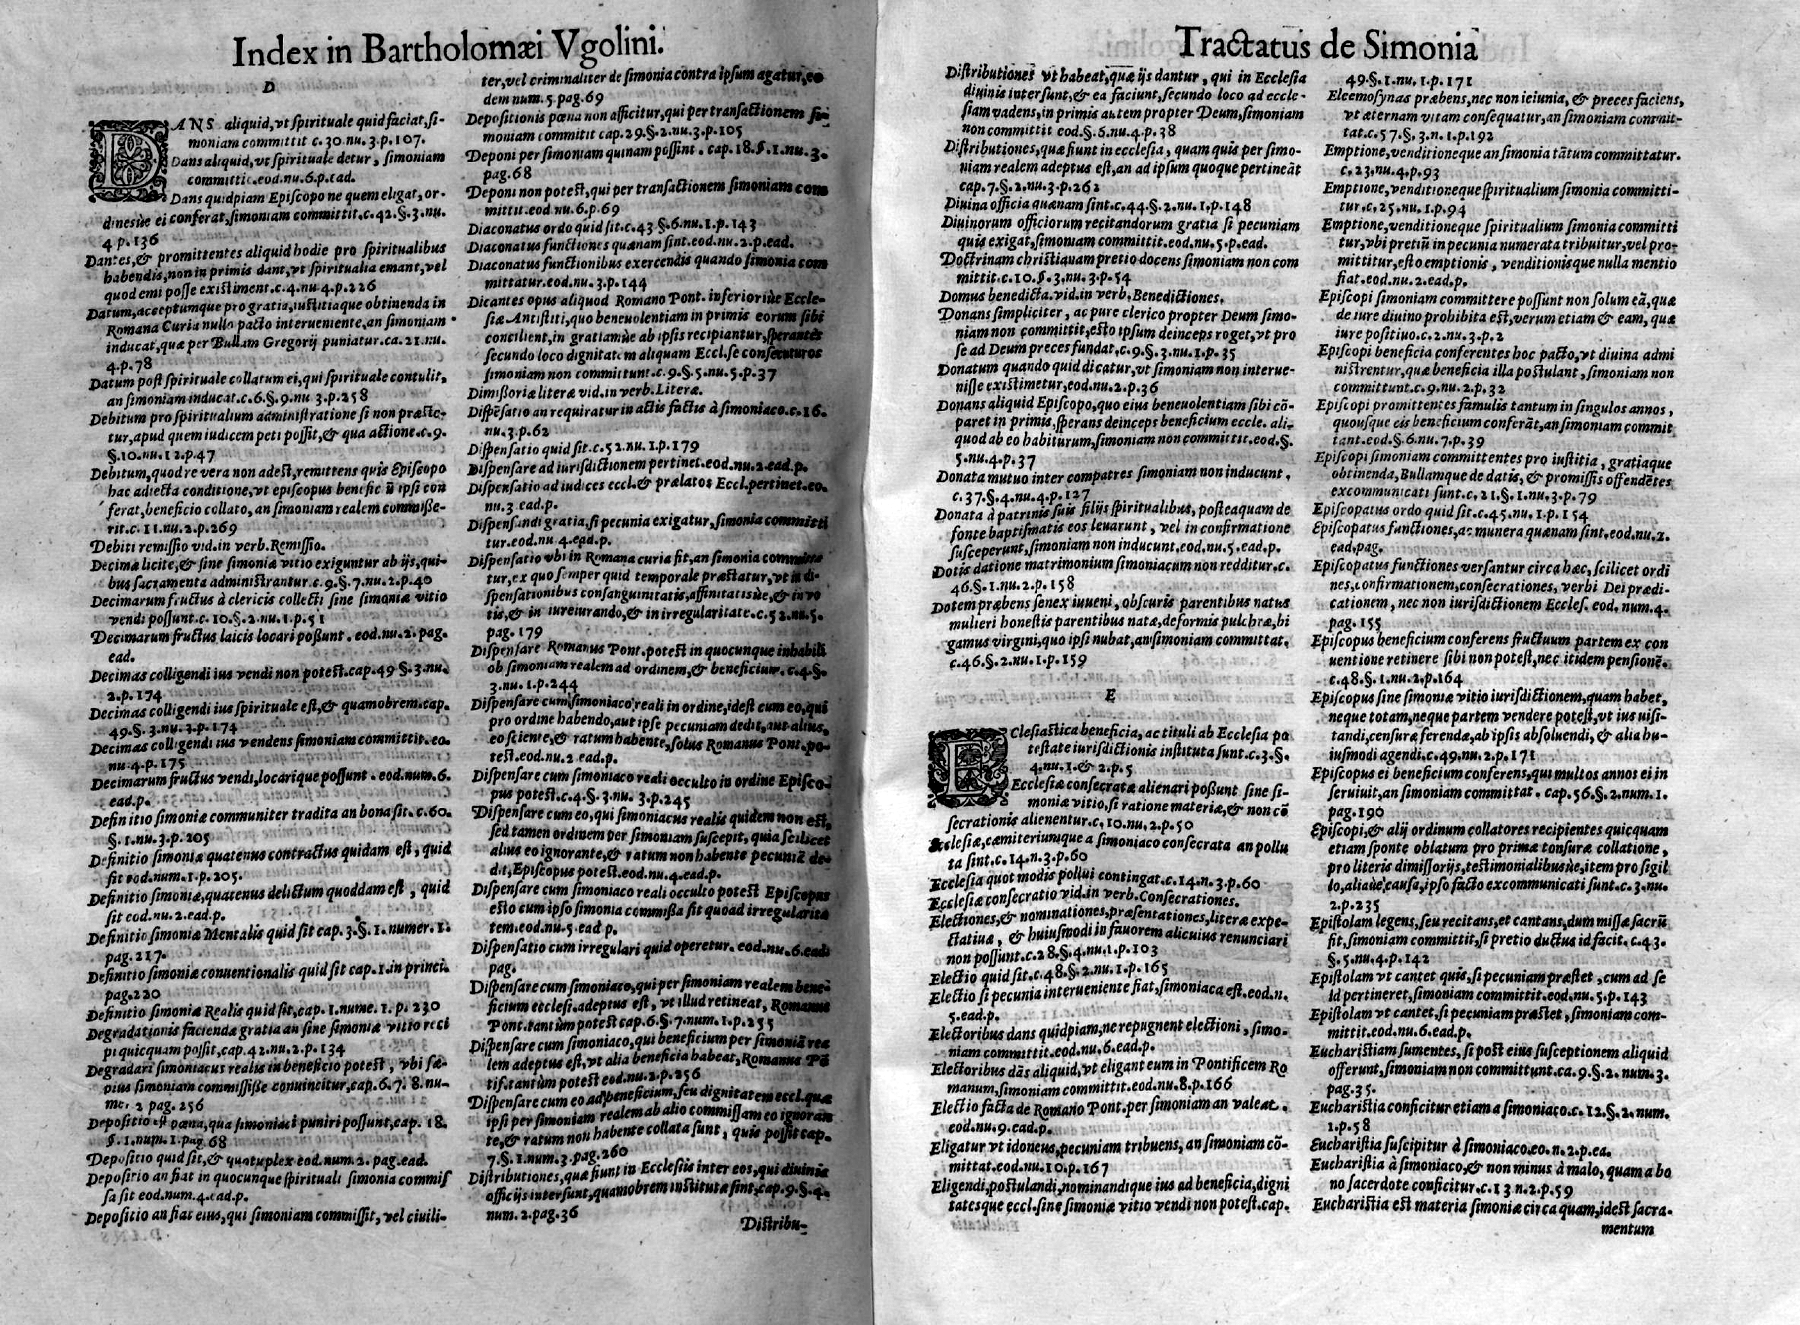 Index in Bartholomæi Vgolini.
D
DANS aliquid, vt spirituale quid faciat, si-
moniam committit c. 30. nu. 3. p. 107.
Dans aliquid, vt spirituale detur, simoniam
committit. eod. nu. 6. p. ead.
Dans quidpiam Episcopo ne quem eligat, or-
dinesue ei conferat, simoniam committit. c. 42. §. 3. nu.
4 p. 136
Dantes, & promittentes aliquid hodie pro spiritualibus
habendis, non in primis dant, vt spiritualia emant, vel
quod emi posse existiment. c. 4. nu. 4. p. 226
Datum, acceptumque pro gratia, iustitiaque obtinenda in
Romana Curia nullo pacto interueniente, an simoniam
inducat, quæ per Bullam Gregorij puniatur. ca. 21. nu.
4. p. 78
Datum post spirituale collatum ei, qui spirituale contulit,
an simoniam inducat. c. 6. §. 9. nu 3. p. 258
Debitum pro spiritualium administratione si non præste-
tur, apud quem iudicem peti possit, & qua actione. c. 9.
§. 10. nu. 12. p. 47
Debitum, quod re vera non adest, remittens quis Episcopo
hac adiecta conditione, vt episcopus benefic ũ ipsi con
ferat, beneficio collato, an simoniam realem commisse-
rit. c. 11. nu. 2. p. 269
Debiti remissio vid. in verb. Remissio.
Decimæ licite, & sine simoniæ vitio exiguntur ab ijs, qui-
bus sacramenta administrantur. c. 9. §. 7. nu. 2. p. 40
Decimarum fructus à clericis collecti sine simoniæ vitio
vendi possunt. c. 10. §. 2. nu. 1. p. 51
Decimarum fructus laicis locari possunt. eod. nu. 2. pag.
ead.
Decimas colligendi ius vendi non potest. cap. 49 §. 3. nu.
2. p. 174
Decimas colligendi ius spirituale est, & quamobrem. cap.
49. §. 3. nu. 3. p. 174
Decimas colligendi ius vendens simoniam committit. eo.
nu. 4. p. 175
Decimarum fructus vendi, locarique possunt. eod. num. 6.
ead. p.
Definitio simoniæ communiter tradita an bona sit. c. 60.
§. 1. nu. 3. p. 205
Definitio simoniæ quatenus contractus quidam est, quid
sit eod. num. 1. p. 205.
Definitio simoniæ, quatenus delictum quoddam est, quid
sit eod. nu. 2. ead. p.
Definitio simoniæ Mentalis quid sit cap. 3. §. 1. numer. 1.
pag. 217.
Definitio simoniæ conuentionalis quid sit cap. 1. in princi.
pag. 220
Definitio simoniæ Realis quid sit, cap. 1. nume. 1. p. 230
Degradationis faciendæ gratia an sine simoniæ vitio reci
pi quicquam possit, cap. 42. nu. 2. p. 134
Degradari simoniacus realis in beneficio potest, vbi sæ-
pius simoniam commisisse conuincitur, cap. 6. 7. 8. nu-
me. 2 pag. 256
Depositio est pœna, qua simoniaci puniri possunt, cap. 18.
§. 1. num. 1. pag. 68
Depositio quid sit, & quotuplex eod. num. 2. pag. ead.
Depositio an fiat in quocunque spirituali simonia commis
sa sit eod. num. 4. ead. p.
Depositio an fiat eius, qui simoniam commisit, vel ciuili-
ter, vel criminaliter de simonia contra ipsum agatur, eo
dem num. 5. pag. 69
Depositionis pœna non afficitur, qui per transactionem si-
moniam committit cap. 29. §. 2. nu. 3. p. 105
Deponi per simoniam quinam possint. cap. 18. §. 1. nu. 3.
pag. 68
Deponi non potest, qui per transactionem simoniam com
mittit. eod nu. 6. p. 69
Diaconatus ordo quid sit. c. 43 §. 6. nu. 1. p. 143
Diaconatus functiones quænam sint. eod. nu. 2. p. ead.
Diaconatus functionibus exercendis quando simonia com
mittatur. eod. nu. 3. p. 144
Dicantes opus aliquod Romano Pont. inferioriue Eccle-
siæ Antistiti, quo beneuolentiam in primis eorum sibi
concilient, in gratiamue ab ipsis recipiantur, sperantes
secundo loco dignitatem aliquam Eccl. se consecuturos
simoniam non committunt. c. 9. §. 5. nu. 5. p. 37
Dimissoriæ literæ vid. in verb. Literæ.
Dispẽsatio an requiratur in actis factus à simoniaco. c. 16.
nu. 3. p. 62
Dispensatio quid sit. c. 52. nu. 1. p. 179
Dispensare ad iurisdictionem pertinet. eod. nu. 2. ead. p.
Dispensatio ad iudices eccl. & prælatos Eccl. pertinet. eo.
nu. 3. ead. p.
Dispensandi gratia, si pecunia exigatur, simonia committi
tur. eod. nu. 4. ead. p.
Dispensatio vbi in Romana curia fit, an simonia committa
tur, ex quo semper quid temporale præstatur, vt in di-
spensationibus consanguinitatis, affinitatisue, & in vo
tis, & in iureiurando, & in irregularitate. c. 52. nu. 5.
pag. 179
Dispensare Romanus Pont. potest in quocunque inhabili
ob simoniam realem ad ordinem, & beneficium. c. 4. §.
3. nu. 1. p. 244
Dispensare cum simoniaco reali in ordine, idest cum eo, qui
pro ordine habendo, aut ipse pecuniam dedit, aut alius,
eo sciente, & ratum habente, solus Romanus Pont. po-
test. eod. nu. 2. ead. p.
Dispensare cum simoniaco reali occulto in ordine Episco-
pus potest. c. 4. §. 3. nu. 3. p. 245
Dispensare cum eo, qui simoniacus realis quidem non est,
sed tamen ordinem per simoniam suscepit, quia scilicet
alius eo ignorante, & ratum non habente pecuniã de-
dit, Episcopus potest. eod. nu. 4. ead. p.
Dispensare cum simoniaco reali occulto potest Episcopus
esto cum ipso simonia commissa sit quoad irregularita
tem. eod. nu. 5. ead p.
Dispensatio cum irregulari quid operetur. eod. nu. 6. ead.
pag.
Dispensare cum simoniaco, qui per simoniam realem bene-
ficium ecclesi. adeptus est, vt illud retineat, Romanus
Pont. tantùm potest cap. 6. §. 7. num. 1. p. 255
Dispensare cum simoniaco, qui beneficium per simoniã rea
lem adeptus est, vt alia beneficia habeat, Romanus Põ
tif. tantùm potest eod. nu. 2. p. 256
Dispensare cum eo ad beneficium, seu dignitatem eccl. quæ
ipsi per simoniam realem ab alio commissam eo ignoran
te, & ratum non habente collata sunt, quis possit cap.
7. §. 1. num. 3. pag. 260
Distributiones, quæ fiunt in Ecclesiis inter eos, qui diuinis
officijs intersunt, quamobrem institutæ sint, cap. 9. §. 4.
num. 2. pag. 36
Distribu-
Tractatus de Simonia
Distributiones vt habeat, quæ ijs dantur, qui in Ecclesia
diuinis intersunt, & ea faciunt, secundo loco ad eccle-
siam vadens, in primis autem propter Deum, simoniam
non committit eod. §. 6. nu. 4. p. 38
Distributiones, quæ fiunt in ecclesia, quam quis per simo-
niam realem adeptus est, an ad ipsum quoque pertineãt
cap. 7. §. 2. nu. 3. p. 262
Diuina officia quænam sint. c. 44. §. 2. nu. 1. p. 148
Diuinorum officiorum recitandorum gratia si pecuniam
quis exigat, simoniam committit. eod. nu. 5. p. ead.
Doctrinam christianam pretio docens simoniam non com
mittit. c. 10. §. 3. nu. 3. p. 54
Domus benedicta. vid. in verb. Benedictiones.
Donans simpliciter, ac pure clerico propter Deum simo-
niam non committit, esto ipsum deinceps roget, vt pro
se ad Deum preces fundat. c. 9. §. 3. nu. 1. p. 35
Donatum quando quid dicatur, vt simoniam non interue-
nisse existimetur, eod. nu. 2. p. 36
Donans aliquid Episcopo, quo eius beneuolentiam sibi cõ-
paret in primis, sperans deinceps beneficium eccle. ali-
quod ab eo habiturum, simoniam non committit. eod. §.
5. nu. 4. p. 37
Donata mutuo inter compatres simoniam non inducunt.
c. 37. §. 4. nu. 4. p. 127
Donata à patrinis suis filijs spiritualibus, posteaquam de
fonte baptismatis eos leuarunt, vel in confirmatione
susceperunt, simoniam non inducunt. eod. nu. 5. ead. p.
Dotis datione matrimonium simoniacum non redditur. c.
46. §. 1. nu. 2. p. 158
Dotem præbens senex iuueni, obscuris parentibus natus
mulieri honestis parentibus natæ, deformis pulchræ, bi
gamus virgini, quo ipsi nubat, an simoniam committat.
c. 46. §. 2. nu. 1. p. 159
E
Eclesiastica beneficia, ac tituli ab Ecclesia po
testate iurisdictionis instituta sunt. c. 3. §.
4. nu. 1. & 2. p. 5
Ecclesiæ consecratæ alienari possunt sine si-
moniæ vitio, si ratione materiæ, & non cõ
secrationis alienentur. c. 10. nu. 2. p. 50
Ecclesiæ, cæmiteriumque a simoniaco consecrata an pollu
ta sint. c. 14. n. 3. p. 60
Ecclesia quot modis pollui contingat. c. 14. n. 3. p. 60
Ecclesiæ consecratio vid. in verb. Consecrationes.
Electiones, & nominationes, præsentationes, literæ expe-
ctatiuæ, & huiusmodi in fauorem alicuius renunciari
non possunt. c. 28. §. 4. nu. 1. p. 103
Electio quid sit. c. 48. §. 2. nu. 1. p. 165
Electio si pecunia interueniente fiat, simoniaca est. eod. n.
5. ead. p.
Electoribus dans quidpiam, ne repugnent electioni, simo-
niam committit. eod. nu. 6. ead. p.
Electoribus dãs aliquid, vt eligant eum in Pontificem Ro
manum, simoniam committit. eod. nu. 8. p. 166
Electio facta de Romano Pont. per simoniam an valeat.
eod. nu. 9. ead. p.
Eligatur vt idoneus, pecuniam tribuens, an simoniam cõ-
mittat. eod. nu. 10. p. 167
Eligendi, postulandi, nominandique ius ad beneficia, digni
tatesque eccl. sine simoniæ vitio vendi non potest. cap.
49. §. 1. nu. 1. p. 171
Eleemosynas præbens, nec non ieiunia, & preces faciens,
vt æternam vitam consequatur, an simoniam commit-
tat. c. 57. §. 3. n. 1. p. 192
Emptione, venditioneque an simonia tãtum committatur.
c. 23. nu. 4. p. 93
Emptione, venditioneque spiritualium simonia committi-
tur. c. 25. nu. 1. p. 94
Emptione, venditioneque spiritualium simonia committi
tur, vbi pretiũ in pecunia numerata tribuitur, vel pro-
mittitur, esto emptionis, venditionisque nulla mentio
fiat. eod. nu. 2. ead. p.
Episcopi simoniam committere possunt non solum eã, quæ
de iure diuino prohibita est, verum etiam & eam, quæ
iure positiuo. c. 2. nu. 3. p. 2
Episcopi beneficia conferentes hoc pacto, vt diuina admi
nistrentur, quæ beneficia illa postulant, simoniam non
committunt. c. 9. nu. 2. p. 32
Episcopi promittentes famulis tantum in singulos annos,
quousque eis beneficium conferãt, an simoniam commit
tant. eod. §. 6. nu. 7. p. 39
Episcopi simoniam committentes pro iustitia, gratiaque
obtinenda, Bullamque de datis, & promissis offendẽtes
excommunicati sunt. c. 21. §. 1. nu. 3. p. 79
Episcopatus ordo quid sit. c. 45. nu. 1. p. 154
Episcopatus functiones, ac munera quænam sint. eod. nu. 2.
ead. pag.
Episcopatus functiones versantur circa hæc, scilicet ordi
nes, confirmationem, consecrationes, verbi Dei prædi-
cationem, nec non iurisdictionem Eccles. eod. num. 4.
pag. 155
Episcopus beneficium conferens fructuum partem ex con
uentione retinere sibi non potest, nec itidem pensionẽ.
c. 48. §. 1. nu. 2. p. 164
Episcopus sine simoniæ vitio iurisdictionem, quam habet,
neque totam, neque partem vendere potest, vt ius uisi-
tandi, censuræ ferendæ, ab ipsis absoluendi, & alia hu-
iusmodi agendi. c. 49. nu. 2. p. 171
Episcopus ei beneficium conferens, qui multos annos ei in
seruiuit, an simoniam committat. cap. 56. §. 2. num. 1.
pag. 190
Episcopi, & alij ordinum collatores recipientes quicquam
etiam sponte oblatum pro primæ tonsuræ collatione,
pro literis dimissorijs, testimonialibusue, item pro sigil
lo, aliaue causa, ipso facto excommunicati sunt. c. 3. nu.
2. p. 235
Epistolam legens, seu recitans, et cantans, dum missæ sacrũ
fit, simoniam committit, si pretio ductus id facit. c. 43.
§. 5. nu. 4. p. 142
Epistolam vt cantet quis, si pecuniam præstet, cum ad se
id pertineret, simoniam committit. eod. nu. 5. p. 143
Epistolam vt cantet, si pecuniam præstet, simoniam com-
mittit. eod. nu. 6. ead. p.
Eucharistiam sumentes, si post eius susceptionem aliquid
offerunt, simoniam non committunt. ca. 9. §. 2. num. 3.
pag. 35.
Eucharistia conficitur etiam a simoniaco. c. 12. §. 2. num.
1. p. 58
Eucharistia suscipitur à simoniaco. eo. n. 2. p. ea.
Eucharistia à simoniaco, & non minus à malo, quam a bo
no sacerdote conficitur. c. 13 n. 2. p. 59
Eucharistia est materia simoniæ circa quam, idest sacra-
mentum